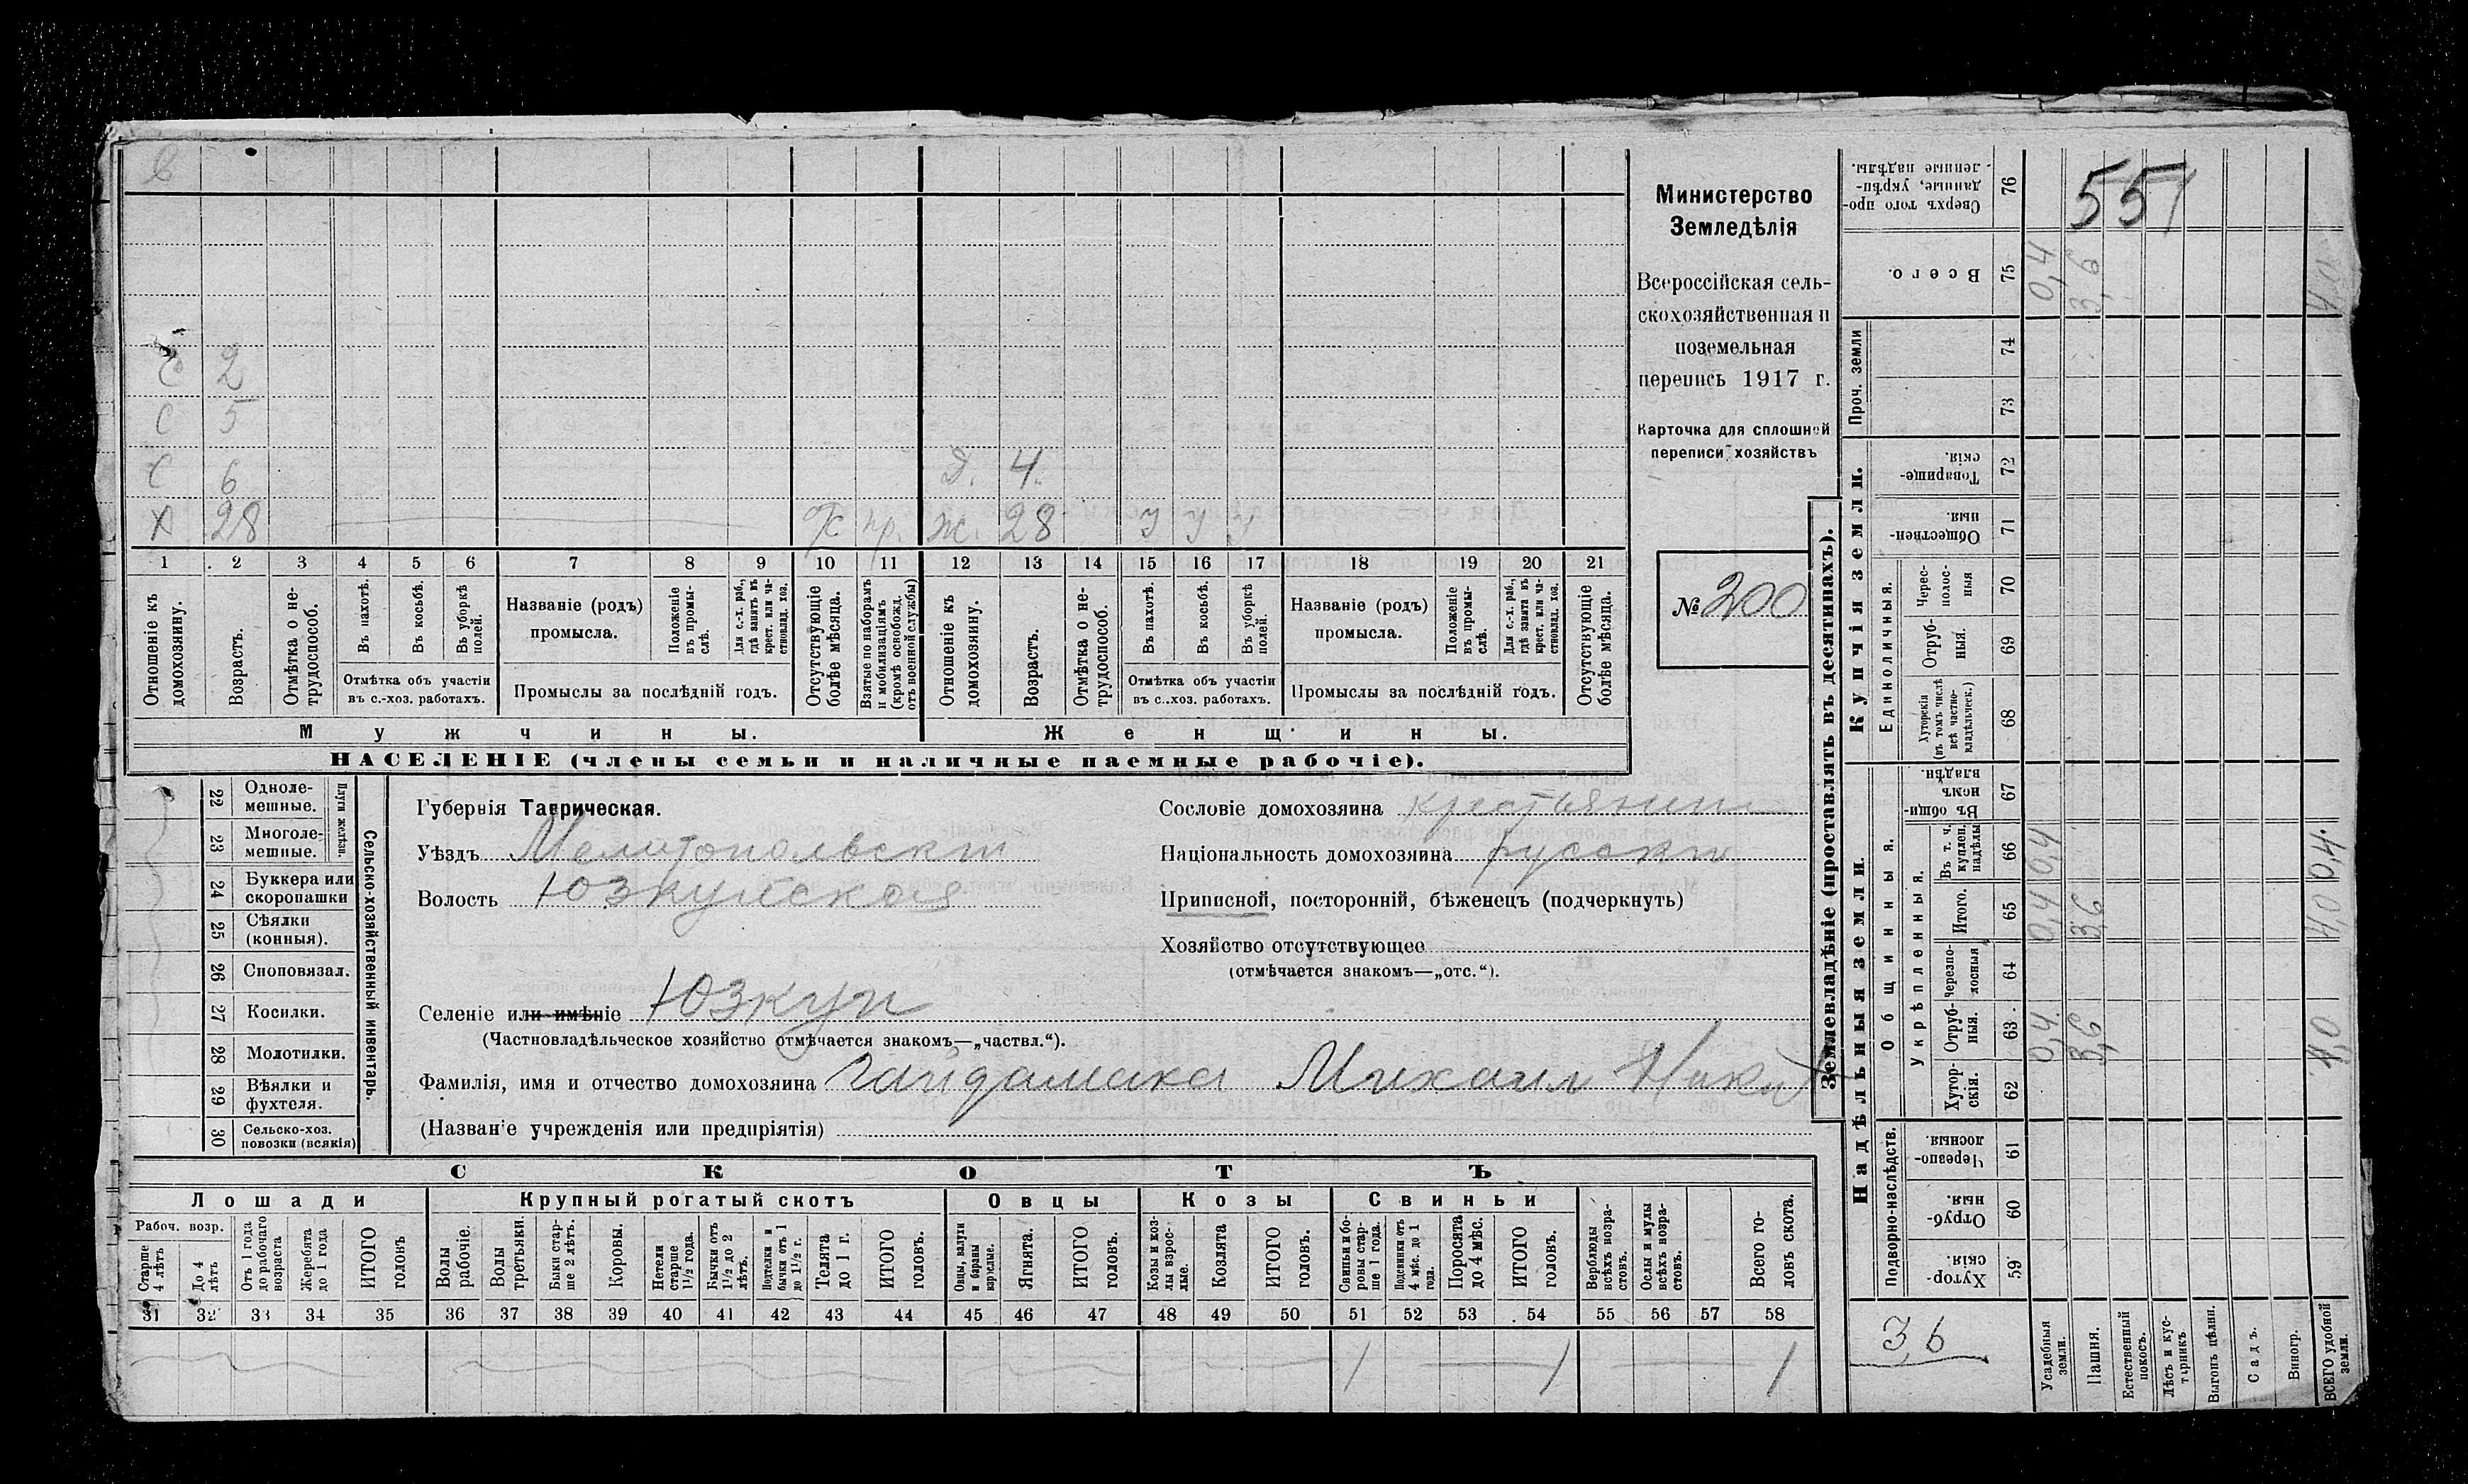 С 2
С 5
С 6 Д. 4.
Х 28 Ж. 28 У У У
1 2 3 4 5 6 7 8 9 10 11 12 13 14 15 16 17 18 19 20 21
Отношеніе къ домохозяину.
Возрастъ.
Отмѣтка о нетрудоспособ.
Въ пахотѣ.
Въ косьбѣ.
Въ уборкѣ полей.
Отмѣтка объ участіи
въ с.-хоз. работахъ.
Названіе (родъ)
промысла.
Положеніе въ промыслѣ.
Для с.-х. раб., гдѣ занятъ въ крест. или частновлад. хоз.
Промыслы за послѣдній годъ.
Отсутствующіе болѣе мѣсяца.
Взятые по наборамъ и мобилизаціямъ (кромѣ освобожд. отъ военной службы)
Отношеніе къ домохозяину.
Возрастъ.
Отмѣтка о нетрудоспособ.
Въ пахотѣ.
Въ косьбѣ.
Въ уборкѣ полей.
Отмѣтка объ участіи
въ с.-хоз. работахъ.
Названіе (родъ)
промысла.
Положеніе въ промыслѣ.
Для с.-х. раб., гдѣ занята въ крест. или частновлад. хоз.
Промыслы за послѣдній годъ.
Отсутствующіе болѣе мѣсяца.
Мужчины.
Женщины.
НАСЕЛЕНІЕ (члены семьи и наличные наемные рабочіе).
Министерство
Земледѣлія
Всероссійская сель-
скохозяйственная и
поземельная
перепись 1917 г.
Карточка для сплошной
переписи хозяйствъ
№ 200
22 Одноле-
мешные.
23 Многоле-
мешные.
Плуги желѣзн.
24 Буккера или
скоропашки
25 Сѣялки
(конныя).
26 Сноповязал.
27 Косилки.
28 Молотилки.
29 Вѣялки и
фухтеля.
30 Сельско-хоз.
повозки (всякія)
Сельско-хозяйственный инвентарь.
Губернія Таврическая.
Уѣздъ Мелитопольскій
Волость Юзкуйская
Селеніе или имѣніе Юзкуи
(Частновладѣльческое хозяйство отмѣчается знакомъ—„частвл.“).
Фамилія, имя и отчество домохозяина Гайдамака Михаил Никит
(Названіе учрежденія или предпріятія)
Сословіе домохозяина крестьянин
Національность домохозяина русскій
Приписной, посторонній, бѣженецъ (подчеркнуть)
Хозяйство отсутствующее
(отмѣчается знакомъ—„отс.“).
СКОТЪ
Лошади Крупный рогатый скотъ Овцы Козы Свиньи
Рабоч. возр.
Старше 4 лѣтъ
До 4 лѣтъ
Отъ 1 года до рабочаго возраста
Жеребята до 1 года
ИТОГО головъ
Волы рабочіе.
Волы третьяки.
Быки старше 2 лѣтъ.
Коровы.
Нетели старше 1½ года.
Бычки отъ 1½ до 2 лѣтъ.
Подтелки и бычки отъ 1 до 1½ г.
Телята до 1 г.
ИТОГО головъ.
Овцы, валухи и бараны взрослые.
Ягнята.
ИТОГО головъ.
Козы и козлы взрослые.
Козлята
ИТОГО головъ.
Свиньи и боровы старше 1 года.
Подсвинки отъ 4 мѣс. до 1 года.
Поросята до 4 мѣс.
ИТОГО головъ.
Верблюды всѣхъ возрастовъ.
Ослы и мулы всѣхъ возрастовъ.
Всего головъ скота.
31 32 33 34 35 36 37 38 39 40 41 42 43 44 45 46 47 48 49 50 51 52 53 54 55 56 57 58
1 1 1
Землевладѣніе (проставлять въ десятинахъ).
Надѣльныя земли.
Купчія земли.
Проч. земли
Подворно-наслѣдств.
Общинныя.
Укрѣпленныя.
Единоличныя.
Сверхъ того проданные, укрѣпленные надѣлы. 76 551
Всего. 75 0,4 3,6 4,0
74
73
Товарищескія. 72
Общественныя. 71
Чересполосныя 70
Отрубныя. 69
Хуторскія (въ томъ числѣ всѣ частновладѣльческ.) 68
Въ общинномъ владѣн. 67
Въ т. ч. куплен. надѣлы 66 0,4 0,4
Итого. 65 0,4 3,6 4,0
Черезполосныя 64
Отрубныя. 63 0,4 3,6 4,0
Хуторскія. 62
Черезполосныя. 61
Отрубныя. 60
Хуторскія. 59
3,6
Усадебныя земли.
Пашня.
Естественный покосъ.
Лѣсъ и кустарникъ
Выгонъ цѣлин.
Садъ.
Виногр.
ВСЕГО удобной земли.